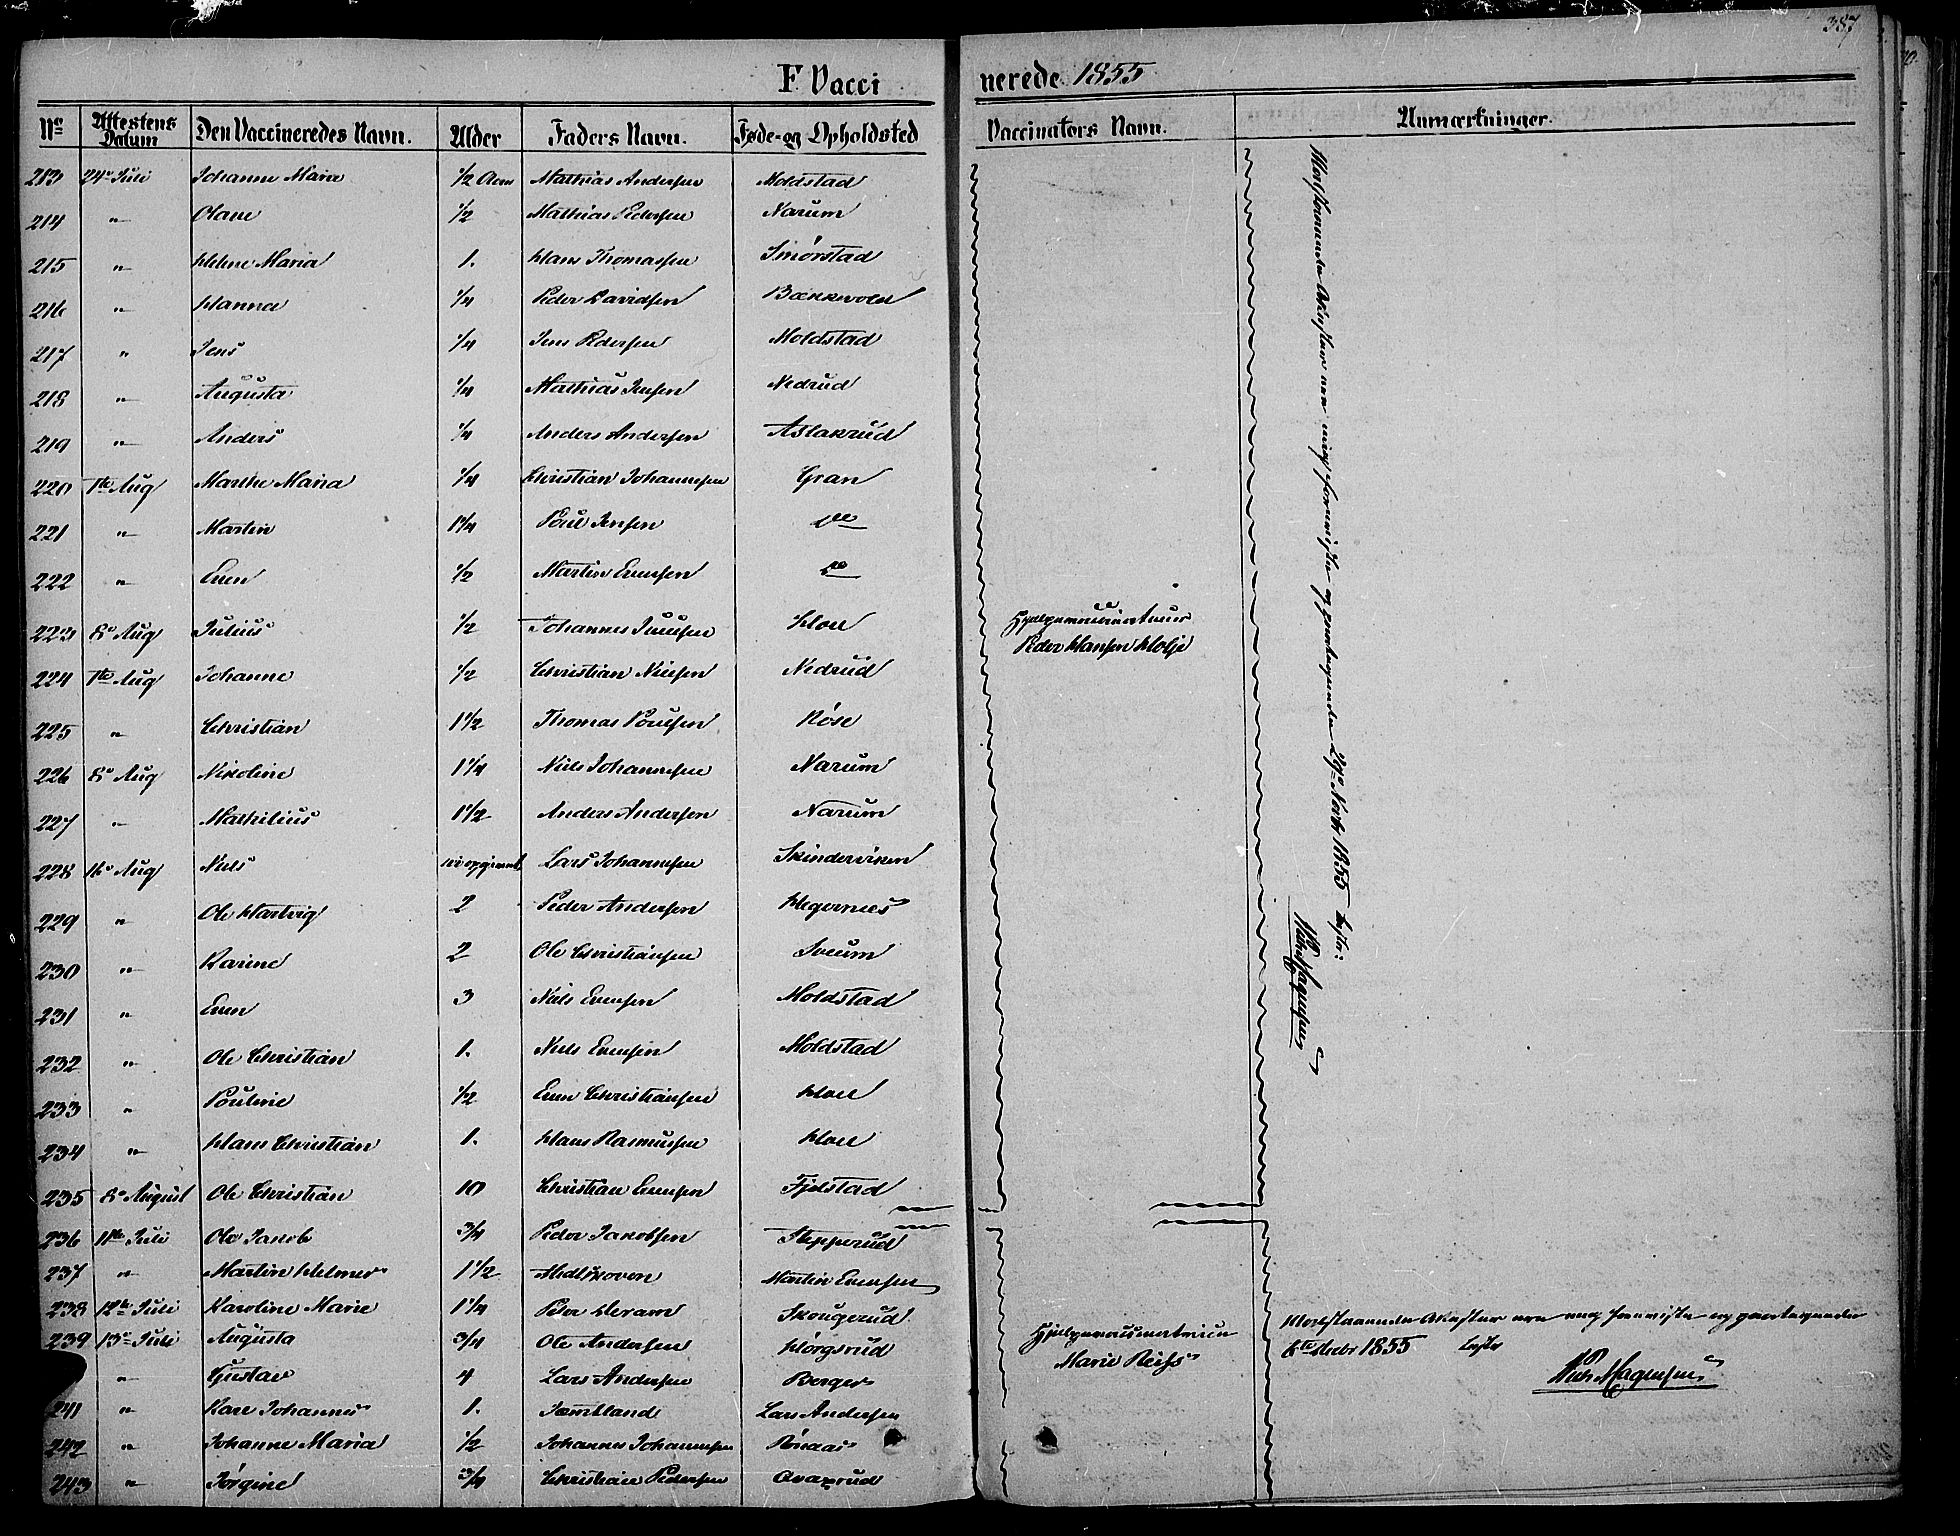 387
F. Vaccinerede 1855
No Attestens Datum Den Vaccineredes Navn. Alder Faders Navn. Føde- og Opholdsted Vaccinators Navn. Anmærkninger.
213 24de Juli Johanne Marie 1/2 Aar Mathias Andersen Moldstad
214 " Olane 1/2 Mathias Pedersen Narum
215 " Helene Maria 1. Hans Thomassen Smørstad
216 " Hanna 1/4 Peder Davidsen Bækkevold
217 " Jens 1/4 Jens Pedersen Moldstad
218 " Augusta 1/4 Mathias Jensen Nedrud
219 " Anders 1/4 Anders Andersen Aslakrud
220 1ste Aug Marthe Maria 1/4 Christian Johannesen Gran
221 " Martin 1 1/4 Poul Jensen do
222 " Even 1/2 Martin Evensen do
223 8de Aug Julius 1/2 Johannes Hoel
Hjelpevaccinateur
224 1ste Aug Johanne 1/2 Christian Nielsen Nedrud
Peder Hansen Holje
225 " Christian 1 1/2 Thomas Poulsen Røse
226 8de Aug Nikoline 1 1/4 Niels Johannesen Narum
227 " Mathilius 1 1/2 Anders Andersen Narum
228 16de Aug Niels ei opgivet Lars Johannesen Skinderviken
229 " Ole Hartvig 2 Peder Andersen Hegernes
230 " Karine 2 Ole Christiansen Sveum
231 " Even 3 Niels Evensen Moldstad
232 " Ole Christian 1. Niels Evensen Moldstad
233 " Pouline 1/2 Even Christiansen Hoel
234 " Hans Christian 1. Hans Rasmussen Hoel
235 8de August Ole Christian 10 Christian Evensen Fjelstad
236 11te Juli Ole Jakob 3/4 Peder Jakobsen Stepperud
237 " Martin Helmer 1 1/2 Midtskoven Martin Evensen
238 12te Juli Karoline Marie 1 1/4 Peder Heram Skougerud
239 13de Juli Augusta 3/4 Ole Andersen Hørgsrud
" Gustav 4 Lars Andersen Berger
241 " Kari Johannes 1. Jæmtland Lars Andersen
242 " Johanne Maria 1/2 Johannes Johannesen Rønaas
243 " Jørgine 3/4 Christian Pedersen Qvaxrud
Hjelpevaccinatricen
Marie Reiss
Modstaaende Attester ere mig foreviste og gjentagende
6te Decbr 1855
Modstaaende Attester ere mig foreviste og gjentagende 29de Novbr 1855